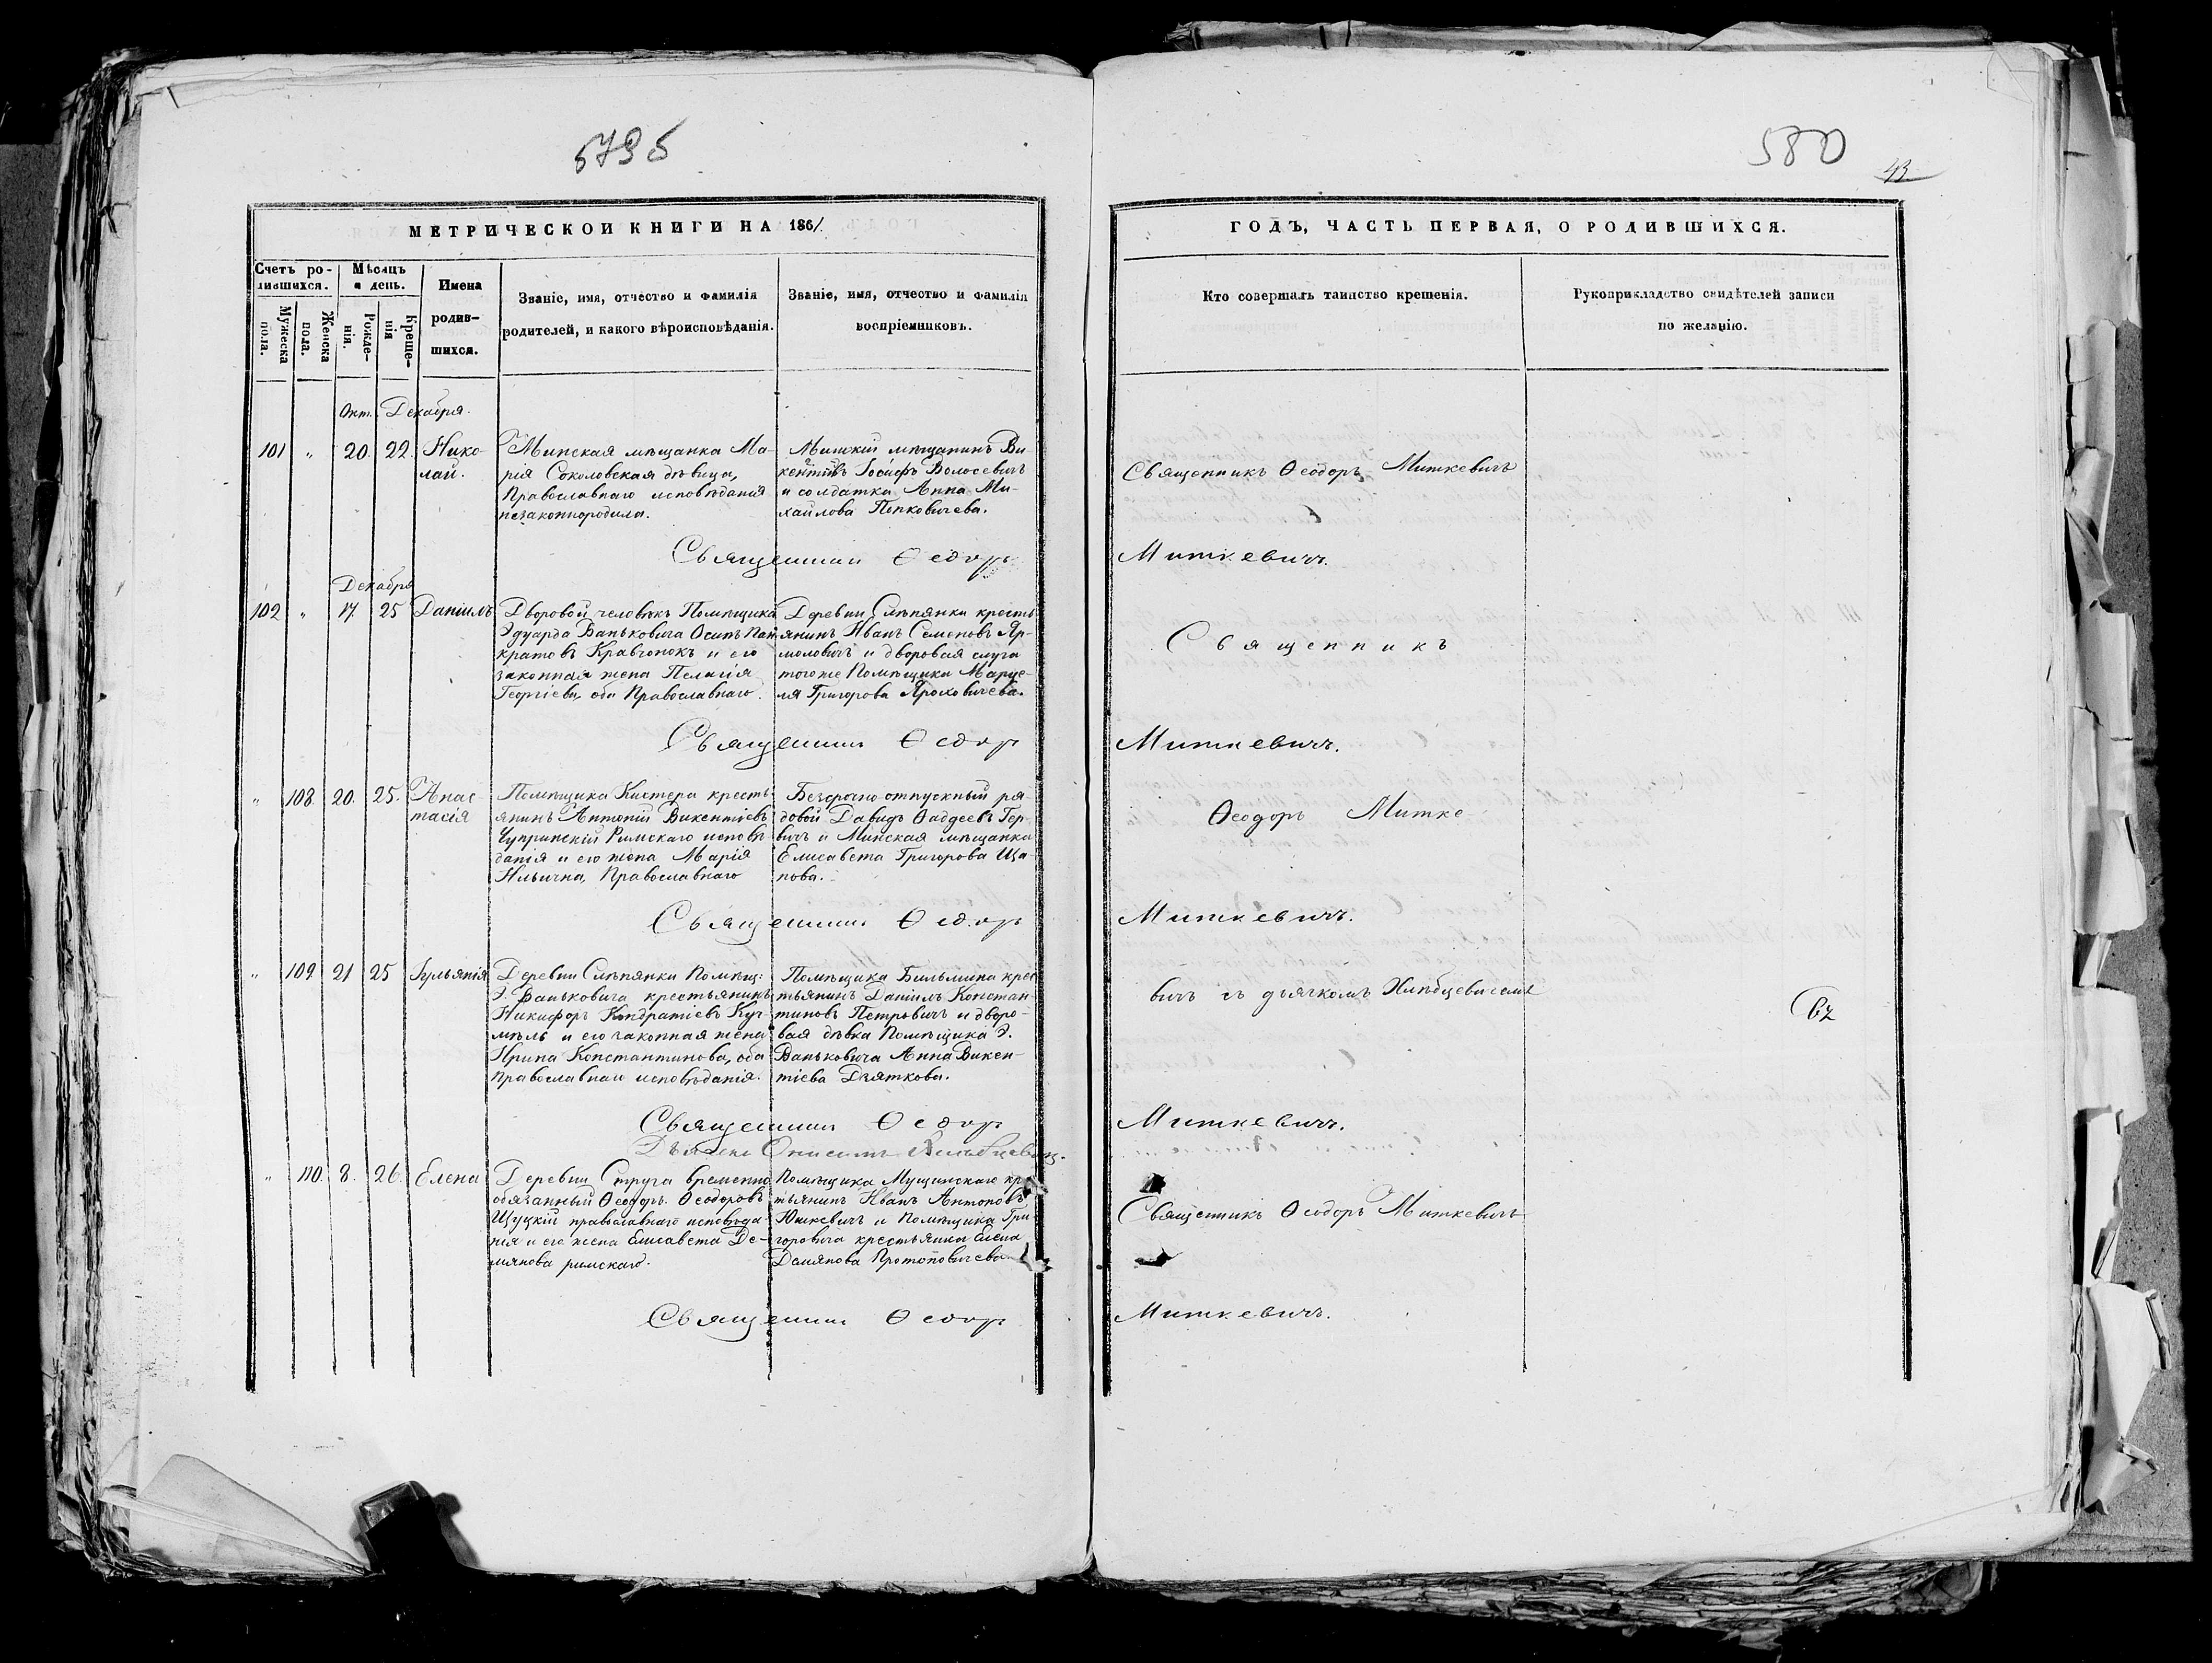 579б
580
43
МЕТРИЧЕСКОЙ КНИГИ НА 1861
ГОДЪ, ЧАСТЬ ПЕРВАЯ, О РОДИВШИХСЯ.
Счетъ ро-
дившихся.
Мужеска
пола.
Женска
пола.
Мѣсяцъ
и день.
Рожде-
нія.
Креще-
нія
Имена
родив-
шихся.
Званіе, имя, отчество и фамилія
родителей, и какого вѣроисповѣданія.
Званіе, имя, отчество и фамилія
воспріемниковъ.
Кто совершалъ таинство крещенія.
Рукоприкладство свидѣтелей записи
по желанію.
Окт. Декабря.
101 " 20. 22. Нико-
лай.
Минская мѣщанка Ма-
рія Соколовская дѣвица,
Православнаго исповѣданія
незаконнородила.
Минскій мѣщанинъ Ви-
кентіевъ Іосифъ Волосевичъ
и солдатка Анна Ми-
хайлова Пенковичева.
Священникъ Ѳеодоръ Миткевичъ
Священникъ Ѳеодоръ
Миткевичъ.
Декабря
102 " 17. 25 Даніилъ
Дворовой человѣкъ Помѣщика
Эдуарда Ваньковича Осипъ Пан-
кратовъ Кравчонокъ и его
законная жена Пелагія
Георгіева, оба Православнаго.
Деревни Слѣпянки кресть-
янинъ Иванъ Семеновъ Яр-
моловичъ и дворовая слуга
тогоже Помѣщика Марце-
ля Григорова Яроховичева.
Священникъ
Священникъ Ѳеодоръ
Миткевичъ.
" 108. 20. 25. Анас-
тасія
Помѣщика Кистера кресть-
янинъ Антоній Викентіевъ
Чупринскій Римскаго исповѣ-
данія и его жена Марія
Ильична, Православнаго
Безсрочно отпускный ря-
довой Давидъ Ѳаддеевъ Гер-
вичъ и Минская мѣщанка
Елисавета Григорова Ща-
пова.
Ѳеодоръ Митке-
Священникъ Ѳеодоръ
Миткевичъ.
" 109 21 25 Іульянія
Деревни Слѣпянки Помѣщ:
Э. Ваньковича крестьянинъ
Никифоръ Кондратіевъ Куч-
мѣль и его законная жена
Ирина Константинова, оба
Православнаго исповѣданія.
Помѣщика Бильмина крес-
тьянинъ Даніилъ Констан-
тиновъ Петровичъ и дворо-
вая дѣвка Помѣщика Э.
Ваньковича Анна Викен-
тіева Дзяткова.
вичъ съ дьячкомъ Хлѣбцевичемъ
Священникъ Ѳеодоръ
Миткевичъ.
" 110. 8. 26. Елена
Деревни Струга временно
обязанный Ѳеодоръ Ѳеодоровъ
Щуцкій православнаго исповѣда-
нія и его жена Елисавета Де-
мянова римскаго.
Помѣщика Мущинскаго крес-
тьянинъ Иванъ Антоновъ
Юшкевичъ и Помѣщика Гри-
горовича крестьянка Елена
Демянова Протоповичева
Священникъ Ѳеодоръ Миткевичъ
Священникъ Ѳеодоръ
Миткевичъ.